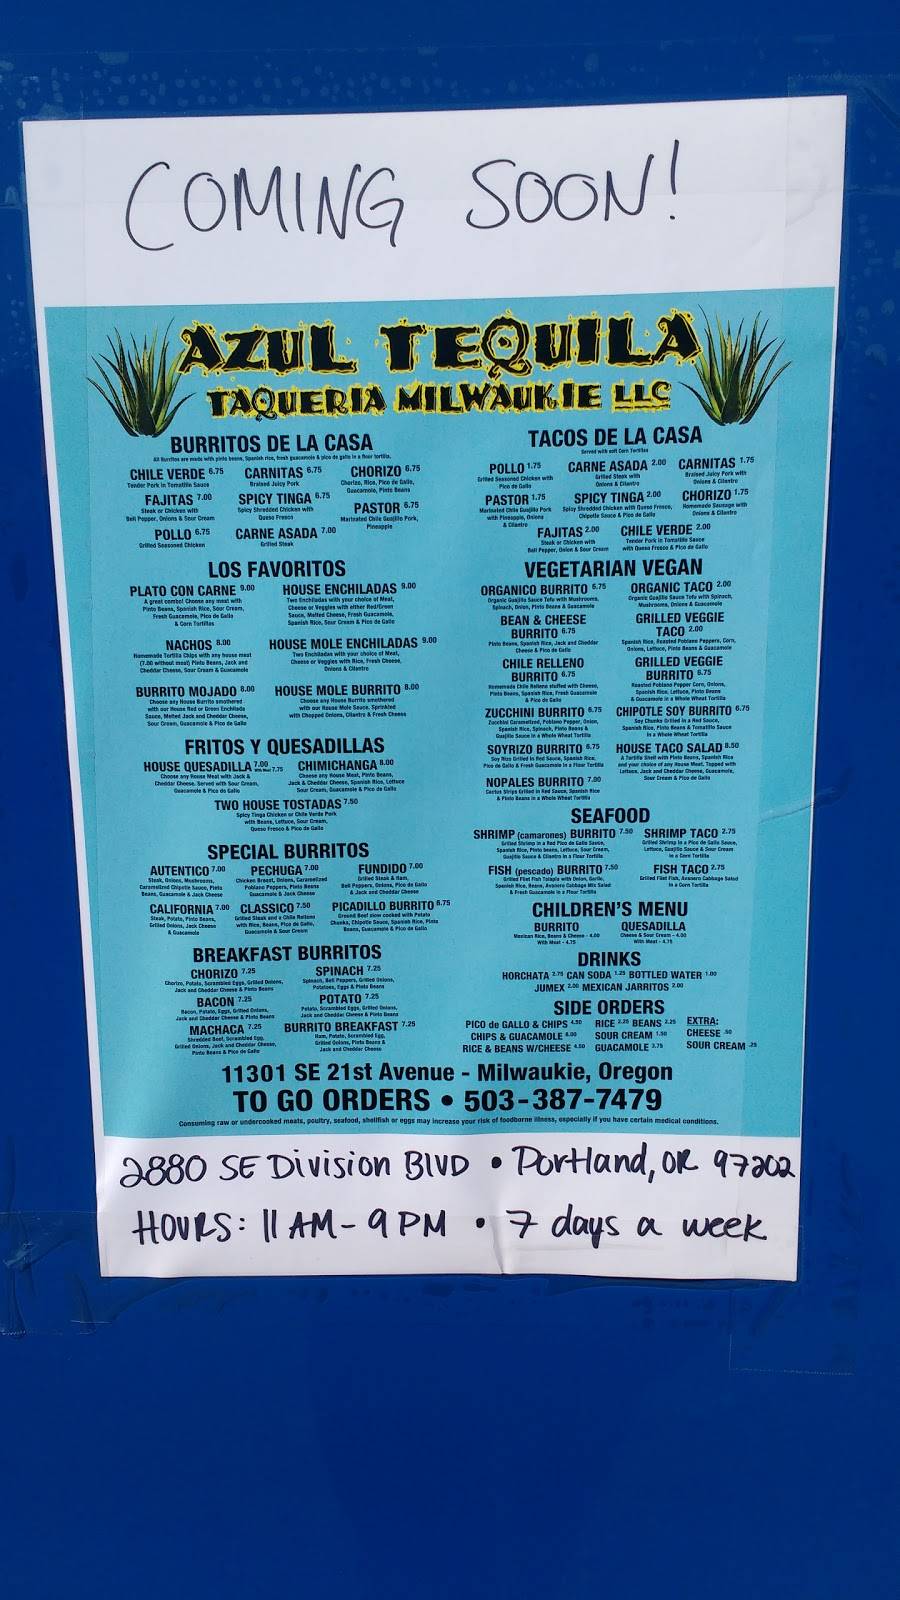 COMING SOON!
AZUL TEQUILA
TAQUERIA MILWAUKIE LLC
BURRITOS DE LA CASA
All Burritos are made with pinto beans, Spanish rice, fresh guacamole & pico de gallo in a flour tortilla.
CHILE VERDE 6.75
Tender Pork in Tomatillo Sauce
CARNITAS 6.75
Braised Juicy Pork
CHORIZO 6.75
Chorizo, Rice, Pico de Gallo,
Guacamole, Pinto Beans
FAJITAS 7.00
Steak or Chicken with
Bell Pepper, Onions & Sour Cream
SPICY TINGA 6.75
Spicy Shredded Chicken with
Queso Fresco
PASTOR 6.75
Marinated Chile Guajillo Pork,
Pineapple
POLLO 6.75
Grilled Seasoned Chicken
CARNE ASADA 7.00
Grilled Steak
LOS FAVORITOS
PLATO CON CARNE 9.00
A great combo! Choose any meat with
Pinto Beans, Spanish Rice, Sour Cream,
Fresh Guacamole, Pico de Gallo
& Corn Tortillas
HOUSE ENCHILADAS 9.00
Two Enchiladas with your choice of Meat,
Cheese or Veggies with either Red/Green
Sauce, Melted Cheese, Fresh Guacamole,
Spanish Rice, Sour Cream & Pico de Gallo
NACHOS 8.00
Homemade Tortilla Chips with any house meat
(7.00 without meat) Pinto Beans, Jack and
Cheddar Cheese, Sour Cream & Guacamole
HOUSE MOLE ENCHILADAS 9.00
Two Enchiladas with your choice of Meat,
Cheese or Veggies with Rice, Fresh Cheese,
Onions & Cilantro
BURRITO MOJADO 8.00
Choose any House Burrito smothered
with our House Red or Green Enchilada
Sauce, Melted Jack and Cheddar Cheese,
Sour Cream, Guacamole & Pico de Gallo
HOUSE MOLE BURRITO 8.00
Choose any House Burrito smothered
with our House Mole Sauce. Sprinkled
with Chopped Onions, Cilantro & Fresh Cheese
FRITOS Y QUESADILLAS
HOUSE QUESADILLA 7.00 With Meat 7.75
Choose any House Meat with Jack &
Cheddar Cheese. Served with Sour Cream,
Guacamole & Pico de Gallo
CHIMICHANGA 8.00
Choose any House Meat, Pinto Beans,
Jack & Cheddar Cheese, Spanish Rice, Lettuce
Sour Cream, Guacamole & Pico de Gallo
TWO HOUSE TOSTADAS 7.50
Spicy Tinga Chicken or Chile Verde Pork
with Beans, Lettuce, Sour Cream,
Queso Fresco & Pico de Gallo
SPECIAL BURRITOS
AUTENTICO 7.00
Steak, Onions, Mushrooms,
Caramelized Chipotle Sauce, Pinto
Beans, Guacamole & Jack Cheese
PECHUGA 7.00
Chicken Breast, Onions, Caramelized
Poblano Peppers, Pinto Beans
Guacamole & Jack Cheese
FUNDIDO 7.00
Grilled Steak & Ham,
Bell Peppers, Onions, Pico de Gallo
& Jack and Cheddar Cheese
CALIFORNIA 7.00
Steak, Potato, Pinto Beans,
Grilled Onions, Jack Cheese
& Guacamole
CLASSICO 7.50
Grilled Steak and a Chile Relleno
with Rice, Beans, Pico de Gallo,
Guacamole & Sour Cream
PICADILLO BURRITO 6.75
Ground Beef slow cooked with Potato
Chunks, Chipotle Sauce, Spanish Rice, Pinto
Beans, Guacamole & Pico de Gallo
BREAKFAST BURRITOS
CHORIZO 7.25
Chorizo, Potato, Scrambled Eggs, Grilled Onions,
Jack and Cheddar Cheese & Pinto Beans
SPINACH 7.25
Spinach, Bell Peppers, Grilled Onions,
Potatoes, Eggs & Pinto Beans
BACON 7.25
Bacon, Potato, Eggs, Grilled Onions,
Jack and Cheddar Cheese & Pinto Beans
POTATO 7.25
Potato, Scrambled Eggs, Grilled Onions,
Jack and Cheddar Cheese & Pinto Beans
MACHACA 7.25
Shredded Beef, Scrambled Egg,
Grilled Onions, Jack and Cheddar Cheese,
Pinto Beans & Pico de Gallo
BURRITO BREAKFAST 7.25
Ham, Potato, Scrambled Egg,
Grilled Onions, Pinto Beans &
Jack and Cheddar Cheese
TACOS DE LA CASA
Served with soft Corn Tortillas
POLLO 1.75
Grilled Seasoned Chicken with
Pico de Gallo
CARNE ASADA 2.00
Grilled Steak with
Onions & Cilantro
CARNITAS 1.75
Braised Juicy Pork with
Onions & Cilantro
PASTOR 1.75
Marinated Chile Guajillo Pork
with Pineapple, Onions
& Cilantro
SPICY TINGA 2.00
Spicy Shredded Chicken with Queso Fresco,
Chipotle Sauce & Pico de Gallo
CHORIZO 1.75
Homemade Sausage with
Onions & Cilantro
FAJITAS 2.00
Steak or Chicken with
Bell Pepper, Onion & Sour Cream
CHILE VERDE 2.00
Tender Pork in Tomatillo Sauce
with Queso Fresco & Pico de Gallo
VEGETARIAN VEGAN
ORGANICO BURRITO 6.75
Organic Guajillo Sauce Tofu with Mushrooms,
Spinach, Onion, Pinto Beans & Guacamole
ORGANIC TACO 2.00
Organic Guajillo Sauce Tofu with Spinach,
Mushrooms, Onions & Guacamole
BEAN & CHEESE
BURRITO 6.75
Pinto Beans, Spanish Rice, Jack and Cheddar
Cheese & Pico de Gallo
GRILLED VEGGIE
TACO 2.00
Spanish Rice, Roasted Poblano Peppers, Corn,
Onions, Lettuce, Pinto Beans & Guacamole
CHILE RELLENO
BURRITO 6.75
Homemade Chile Relleno stuffed with Cheese,
Pinto Beans, Spanish Rice, Fresh Guacamole
& Pico de Gallo
GRILLED VEGGIE
BURRITO 6.75
Roasted Poblano Pepper Corn, Onions,
Spanish Rice, Lettuce, Pinto Beans
& Guacamole in a Whole Wheat Tortilla
ZUCCHINI BURRITO 6.75
Zucchini Caramelized, Poblano Pepper, Onion,
Spanish Rice, Spinach, Pinto Beans &
Guajillo Sauce in a Whole Wheat Tortilla
CHIPOTLE SOY BURRITO 6.75
Soy Chunks Grilled in a Red Sauce,
Spanish Rice, Pinto Beans & Tomatillo Sauce
in a Whole Wheat Tortilla
SOYRIZO BURRITO 6.75
Soy Rizo Grilled in Red Sauce, Spanish Rice,
Pico de Gallo & Fresh Guacamole in a Flour Tortilla
HOUSE TACO SALAD 8.50
A Tortilla Shell with Pinto Beans, Spanish Rice
and your choice of any House Meat. Topped with
Lettuce, Jack and Cheddar Cheese, Guacamole,
Sour Cream & Pico de Gallo
NOPALES BURRITO 7.00
Cactus Strips Grilled in Red Sauce, Spanish Rice
& Pinto Beans in a Whole Wheat Tortilla
SEAFOOD
SHRIMP (camarones) BURRITO 7.50
Grilled Shrimp in a Red Pico de Gallo Sauce,
Spanish Rice, Pinto beans, Lettuce, Sour Cream,
Guajillo Sauce & Cilantro in a Flour Tortilla
SHRIMP TACO 2.75
Grilled Shrimp in a Pico de Gallo Sauce,
Lettuce, Guajillo Sauce & Sour Cream
in a Corn Tortilla
FISH (pescado) BURRITO 7.50
Grilled Flat Fish Talapia with Onion, Garlic,
Spanish Rice, Beans, Avanero Cabbage Mix Salad
& Fresh Guacamole in a Flour Tortilla
FISH TACO 2.75
Grilled Flat Fish, Avanero Cabbage Salad
in a Corn Tortilla
CHILDREN'S MENU
BURRITO
Mexican Rice, Beans & Cheese - 4.00
With Meat - 4.75
QUESADILLA
Cheese & Sour Cream - 4.00
With Meat - 4.75
DRINKS
HORCHATA 2.75 CAN SODA 1.25 BOTTLED WATER 1.00
JUMEX 2.00 MEXICAN JARRITOS 2.00
SIDE ORDERS
PICO de GALLO & CHIPS 4.50
CHIPS & GUACAMOLE 6.00
RICE & BEANS W/CHEESE 4.50
RICE 2.25 BEANS 2.25
SOUR CREAM 1.50
GUACAMOLE 3.75
EXTRA:
CHEESE .50
SOUR CREAM .25
11301 SE 21st Avenue - Milwaukie, Oregon
TO GO ORDERS • 503-387-7479
Consuming raw or undercooked meats, poultry, seafood, shellfish or eggs may increase your risk of foodborne illness, especially if you have certain medical conditions.
2880 SE Division BLVD • Portland, OR 97202
HOURS: 11 AM - 9 PM • 7 days a week